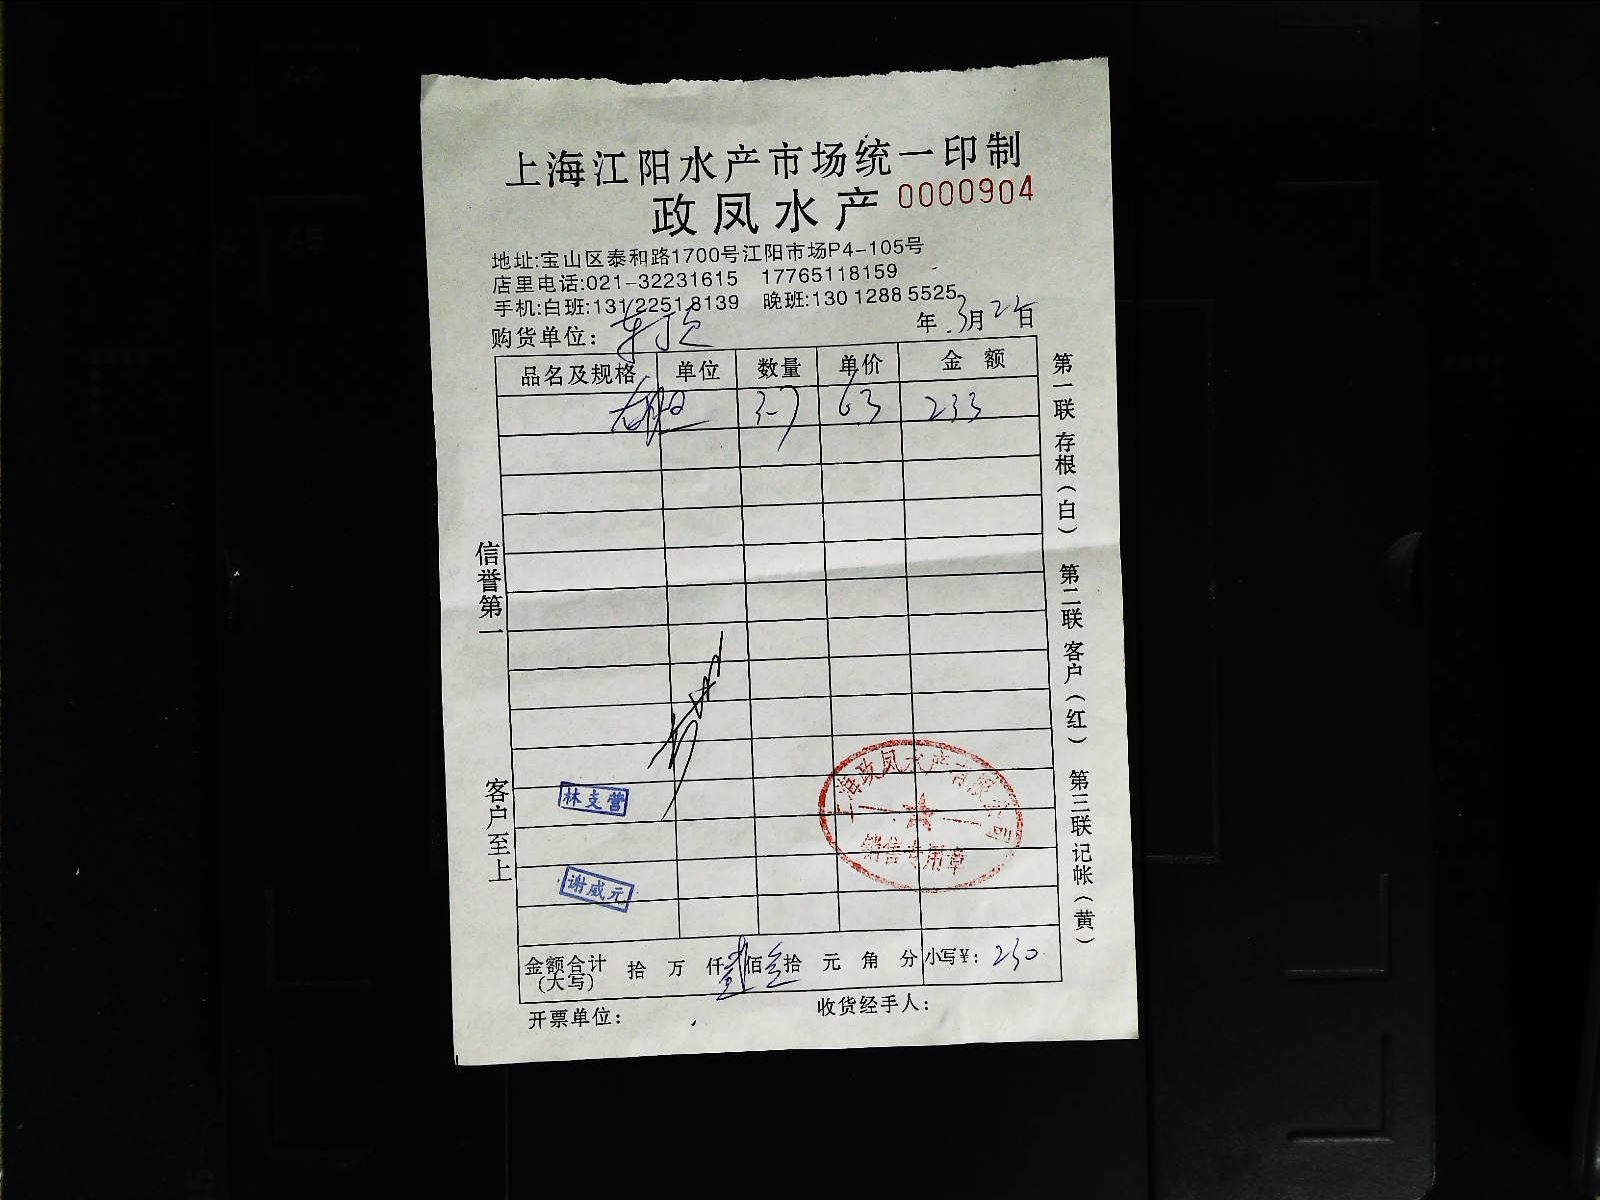 上海江阳水产市场统一印制
政凤水产 0000904
地址:宝山区泰和路1700号江阳市场P4-105号
店里电话:021-32231615 17765118159
手机:白班:13122518139 晚班:13012885525
购货单位: 年 3月 日
品名及规格 单位 数量 单价 金额
3-7 63 233
信誉第一
客户至上
林支营
谢威元
上海政凤水产有限公司
销售专用章
金额合计(大写) 拾 万 仟 贰佰 叁拾 元 角 分 小写¥: 230
开票单位: 收货经手人:
第一联 存根(白) 第二联 客户(红) 第三联 记帐(黄)